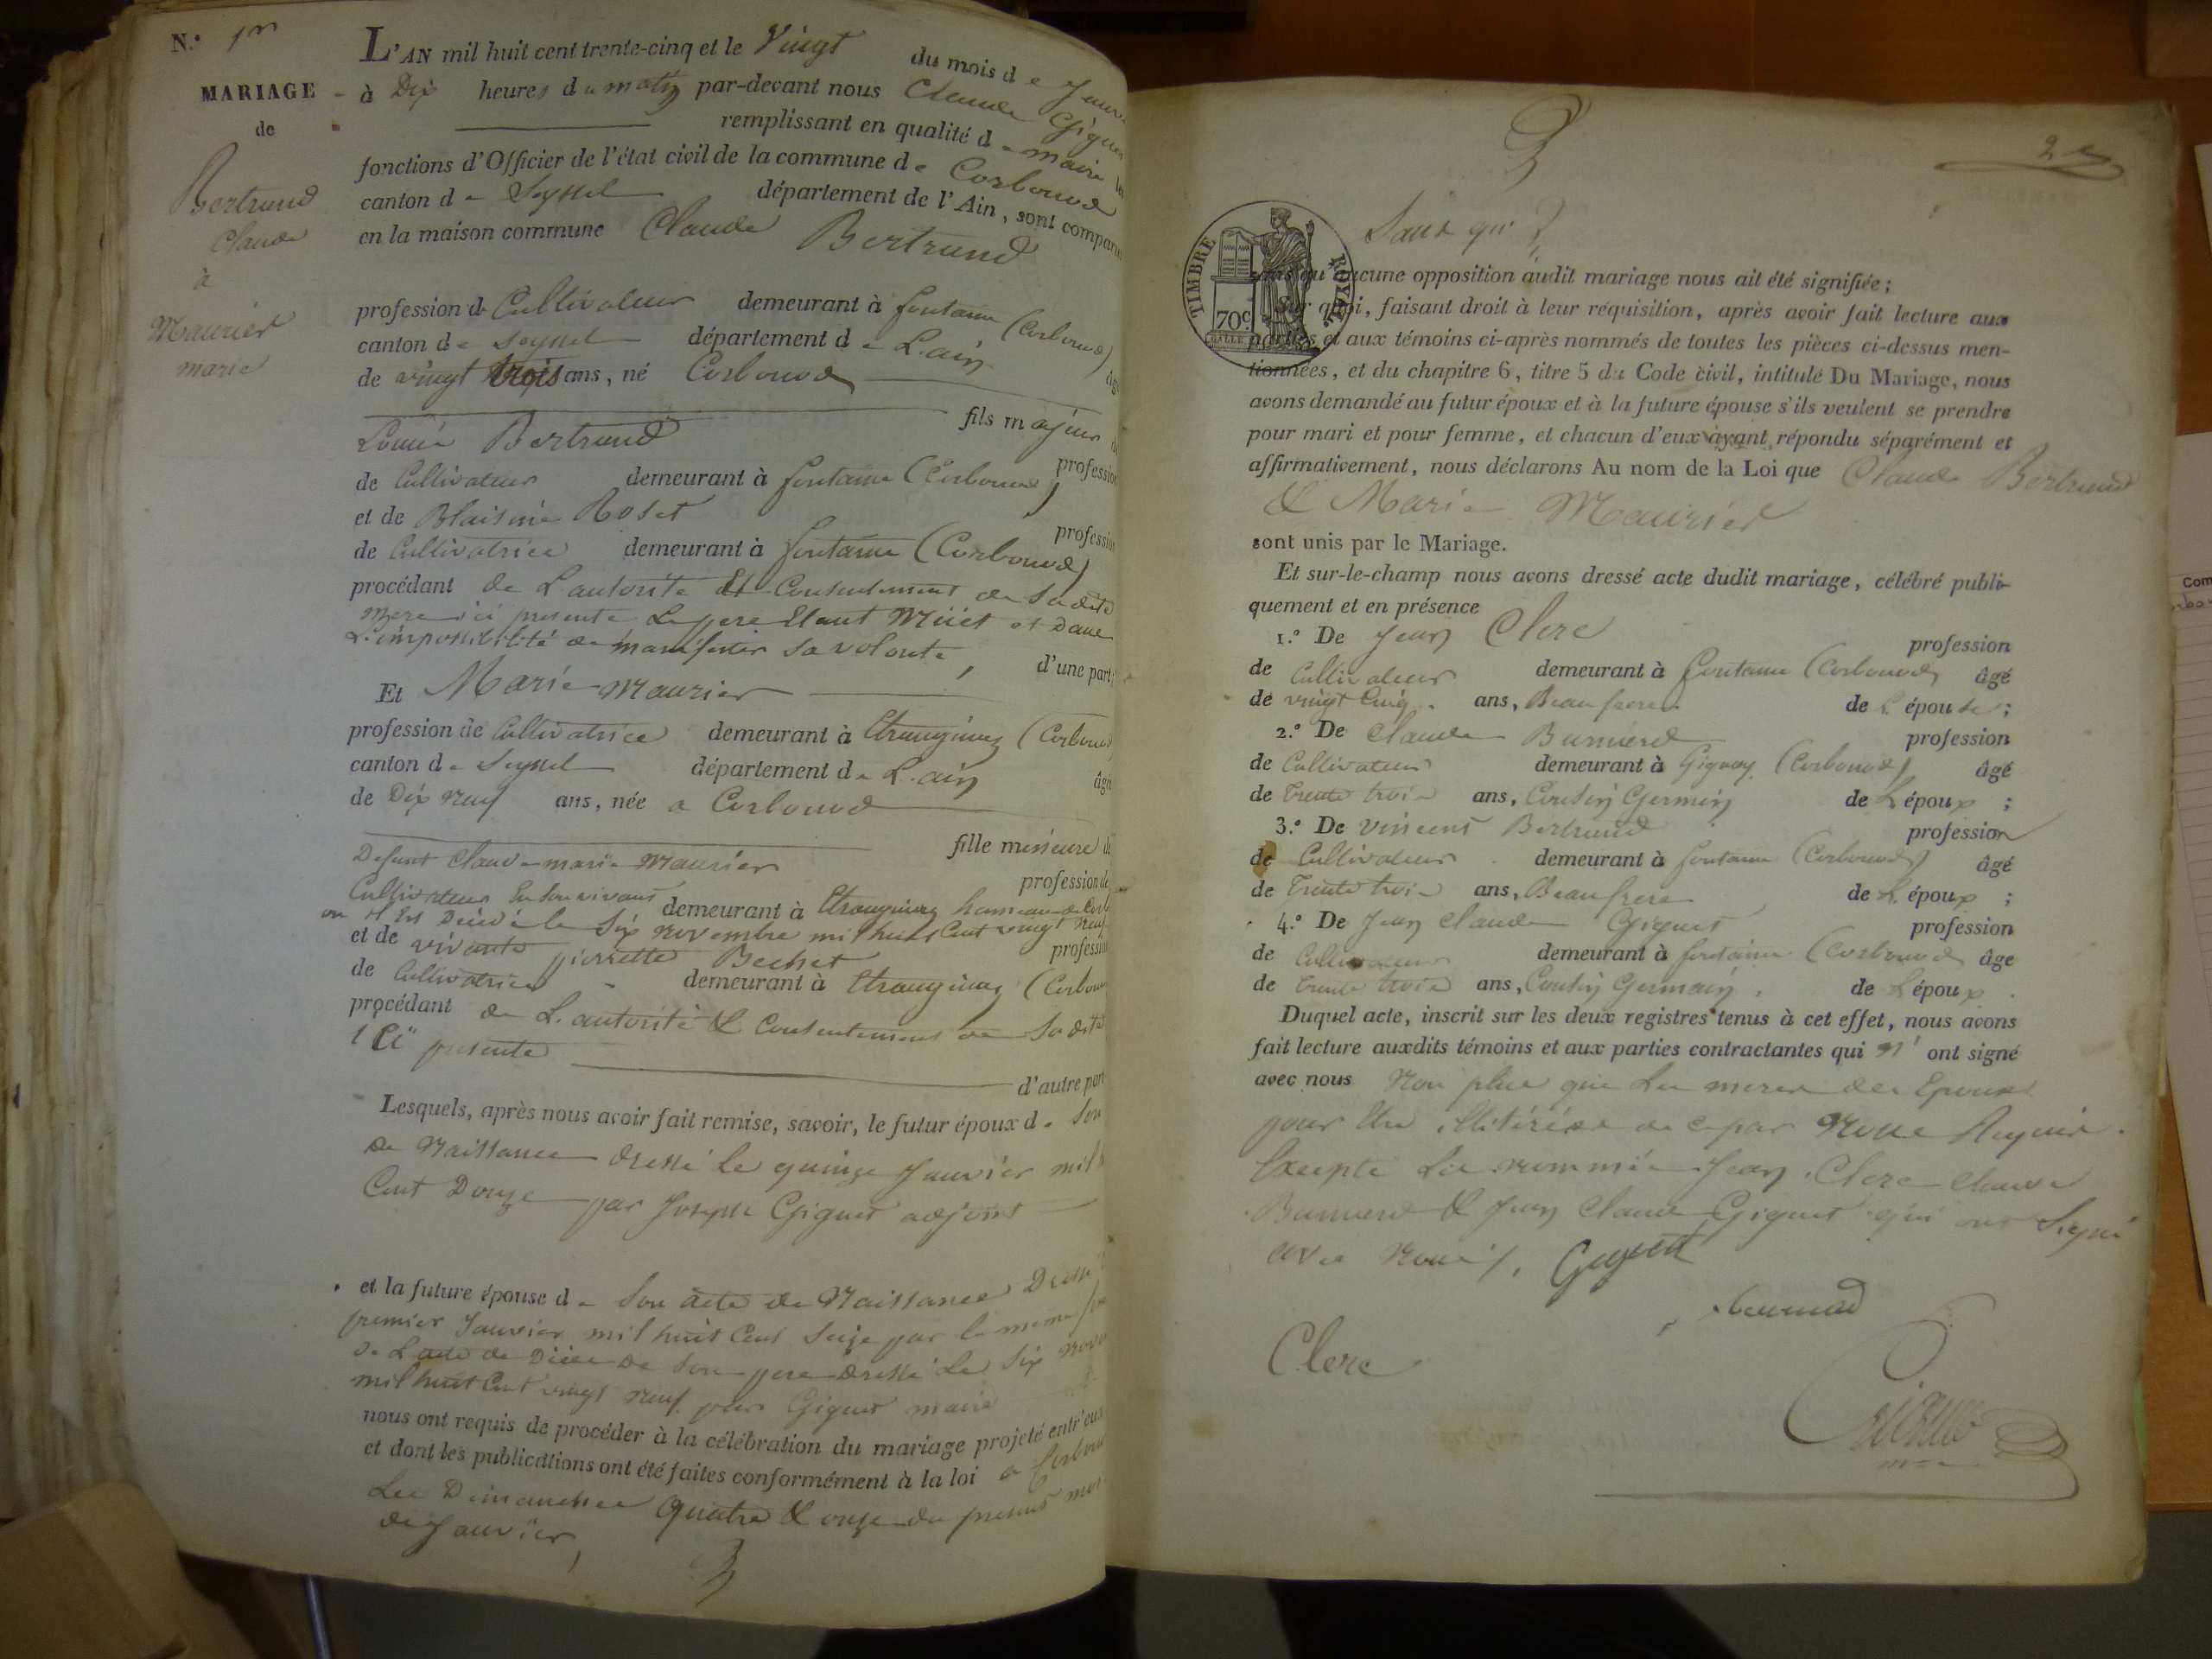 N.º 1er
MARIAGE
de
Bertrand
Claude
à
Maurier
marie
L'AN mil huit cent trente-cinq et le Vingt du mois de Janv
à Dix heures du matin par-devant nous Claude Giguet
remplissant en qualité de maire les
fonctions d'Officier de l'état civil de la commune de Corbonod
canton de Seyssel département de l'Ain, sont comparus
en la maison commune Claude Bertrand
profession de Cultivateur demeurant à fontaine (Corbonod)
canton de Seyssel département de L'ain âgé
de vingt trois ans, né Corbonod
fils majeur de
Bertrand profession
de Cultivateur demeurant à fontaine (Corbonod)
et de Blaisine Roset profession
de Cultivatrice demeurant à fontaine (Corbonod)
procédant de L'autorité Et Consentement de Sa dite
mere ici presente Le pere Etant Müet et Dans
L'impossibilité de manifester sa volonté, d'une part;
Et Marie Maurier
profession de Cultivatrice demeurant à Etranginaz (Corbonod)
canton de Seyssel département de L'ain âgée
de Dix neuf ans, née a Corbonod
fille mineure de
Defunt Claude marie Maurier profession de
Cultivateur En Son vivant demeurant à Etranginaz hameau de Corb
ou il Est Décédé le Six novembre mil huit Cent vingt Neuf
et de vivante pierrette Bechet profession
de Cultivatrice demeurant à Etranginaz (Corbonod
procédant de L'autorité & Consentement de Sa dite
ici presente
d'autre part
Lesquels, après nous avoir fait remise, savoir, le futur époux de Son
de Naissance dressé le quinze Janvier mil h
Cent Douze par Joseph Giguet adjoint
et la future épouse de Son acte de Naissance Dressé
premier Janvier mil huit Cent Seize par le meme
de L'acte de Décès de Son pere dressé Le Six Nov
mil huit Cent vingt Neuf par Giguet maire
nous ont requis de procéder à la célébration du mariage projeté entr'eux
et dont les publications ont été faites conformément à la loi a Corbonod
Les Dimanches Quatre & onze du present mois
de Janvier,
2e
Sans qu'
TIMBRE ROYAL.
70c
sans qu'aucune opposition audit mariage nous ait été signifiée;
Sur quoi, faisant droit à leur réquisition, après avoir fait lecture aux
parties et aux témoins ci-après nommés de toutes les pièces ci-dessus men-
tionnées, et du chapitre 6, titre 5 du Code civil, intitulé Du Mariage, nous
avons demandé au futur époux et à la future épouse s'ils veulent se prendre
pour mari et pour femme, et chacun d'eux ayant répondu séparément et
affirmativement, nous déclarons Au nom de la Loi que Claude Bertrand
& Marie Maurier
sont unis par le Mariage.
Et sur-le-champ nous avons dressé acte dudit mariage, célébré publi-
quement et en présence
1.º De Jean Clerc profession
de Cultivateur demeurant à fontaine (Corbonod) âgé
de vingt Cinq ans, Beau frere de L'épouse;
2.º De Claude profession
de Cultivateur demeurant à Gignez (Corbonod) âgé
de trente trois ans, Cousin Germain de L'époux;
3.º De vincent Bertrand profession
de Cultivateur demeurant à fontaine (Corbonod) âgé
de trente trois ans, Beau frere de L'époux;
4.º De Jean Claude Giguet profession
de Cultivateur demeurant à fontaine (Corbonod) âgé
de trente trois ans, Cousin Germain de L'époux.
Duquel acte, inscrit sur les deux registres tenus à cet effet, nous avons
fait lecture auxdits témoins et aux parties contractantes qui n'ont signé
avec nous Non plus que Les meres des Epoux
pour Etre illitérées de ce par Nous Requis
Excepté Les nommés Jean Clerc Claude
& Jean Claude Giguet qui ont Signé
avec Nous,
Clerc